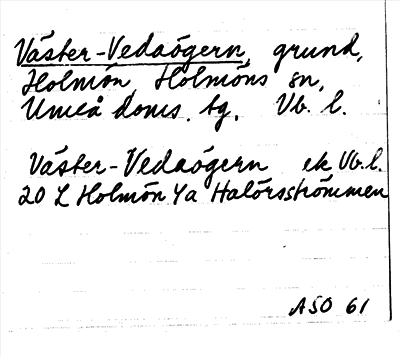 Väster-Vedaögern, grund,
Holmön, Holmöns sn,
Umeå doms. tg. Vb. l.
Väster-Vedaögern ek Vb. l.
20 L Holmön Ya Halörsströmmen
ASO 61